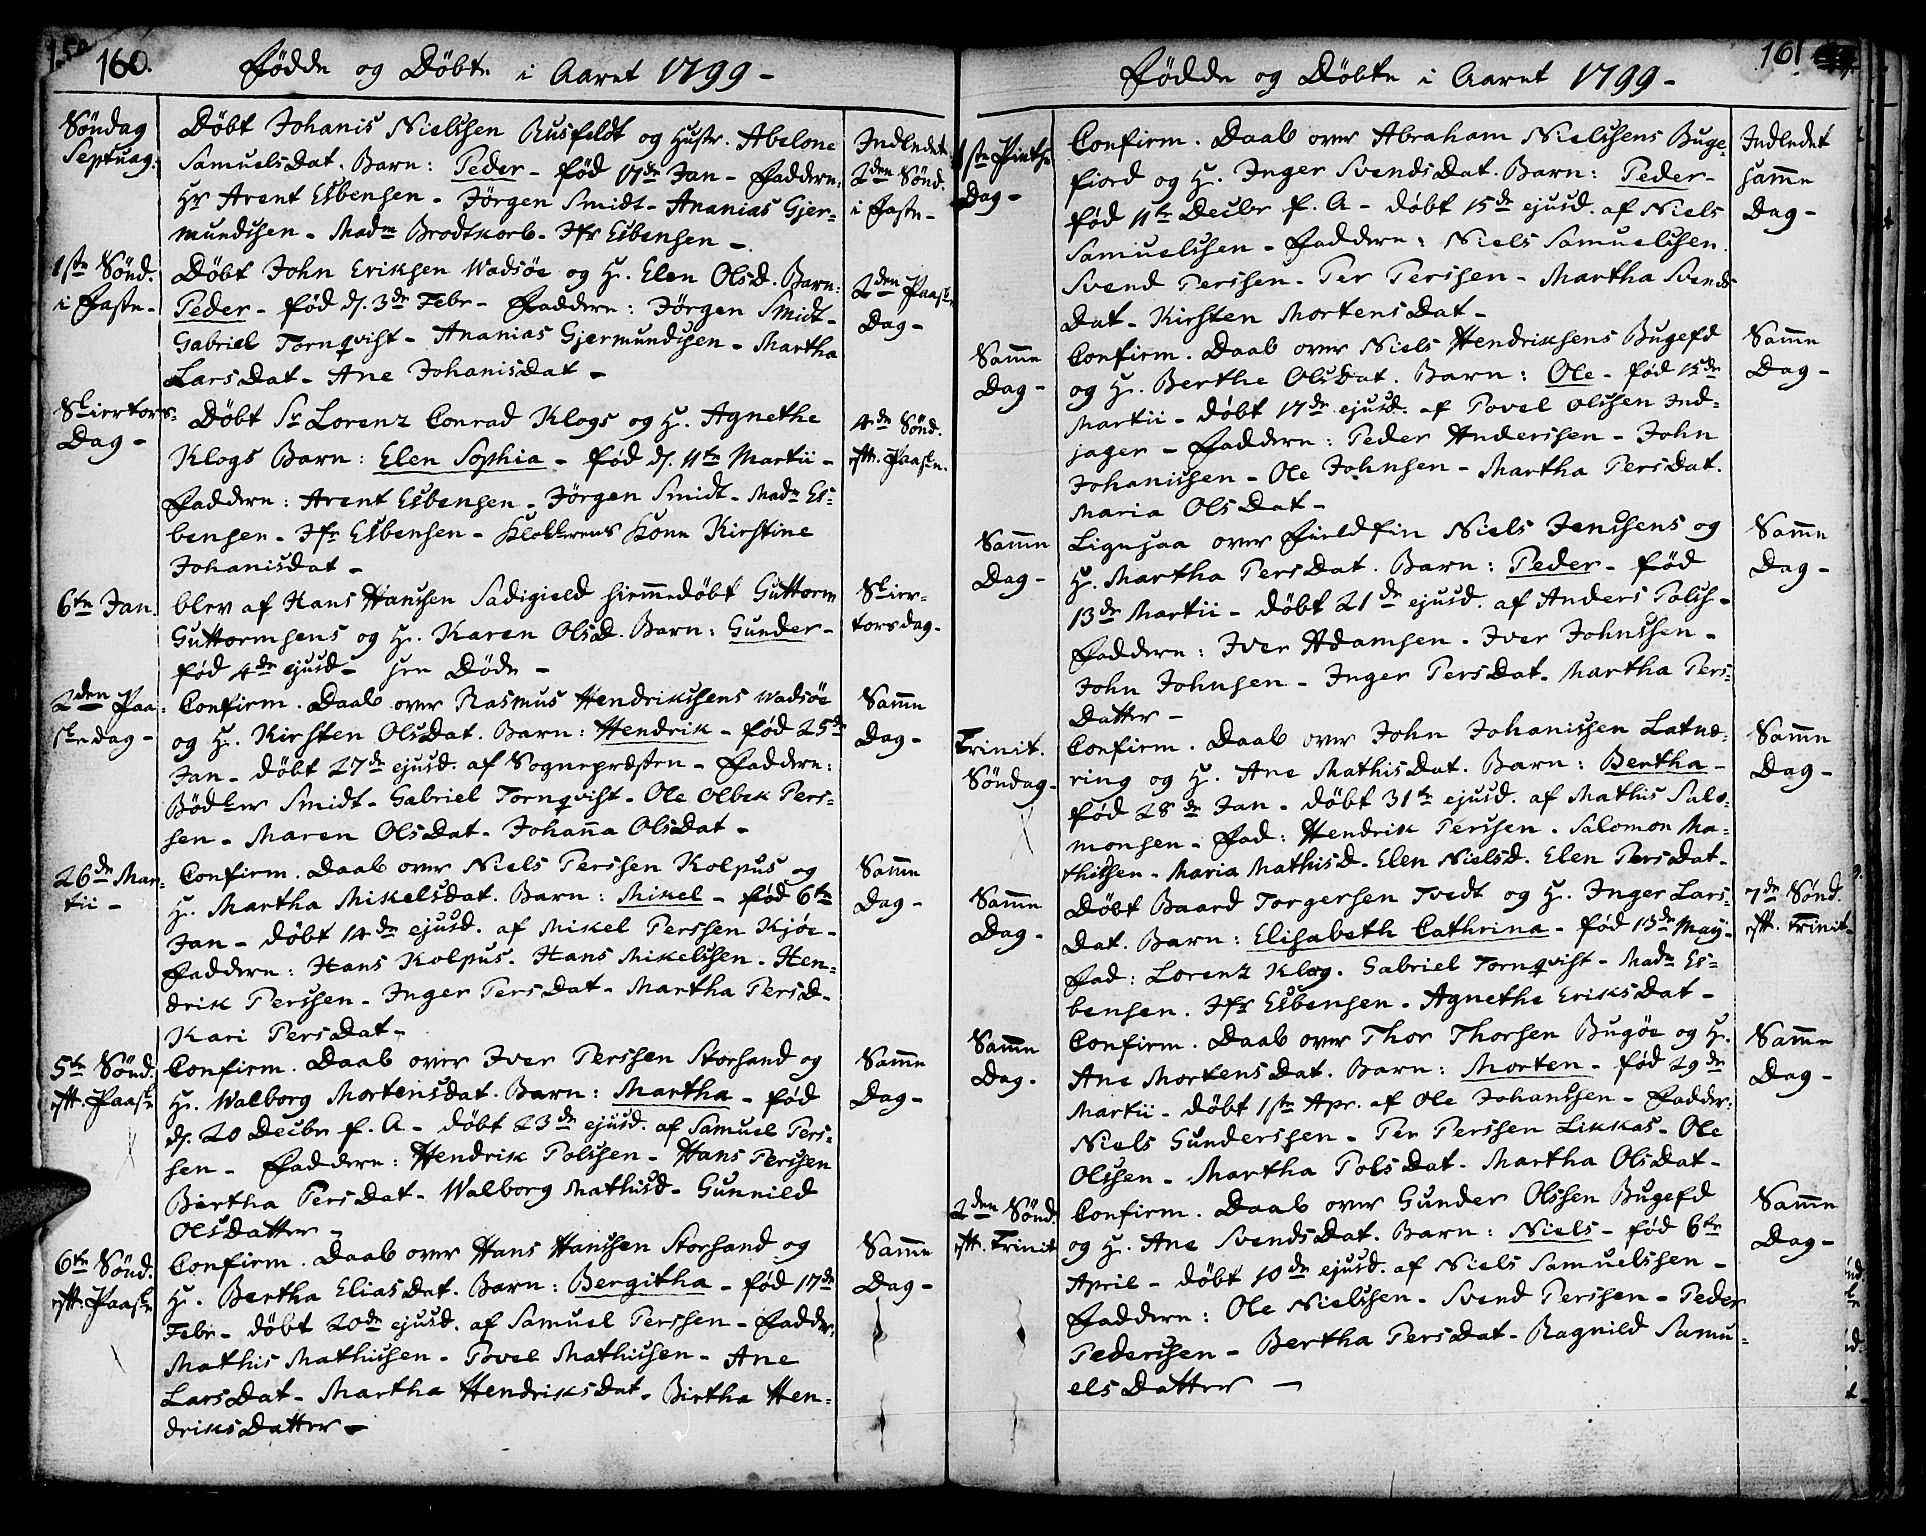 160.
Fødde og Døbte i Aaret 1799 -
Søndag
Septuag:
Døbt Johanis Nielssen Rusfeldt og Hustr. Abelone
SamuelsDat. Barn: Peder - fød 17de Jan - Faddere:
Hr Arent Esbensen - Jörgen Smidt - Ananias Gjer=
mundssen - Madm Brodtkorb - Jfr Esbensen -
Indledet
2den Sønd.
i Faste -
1ste Sønd.
i Faste -
Døbt John Eriksen Wadsöe og H. Elen Olsd. Barn:
Peder - fød d. 3de Febr - Faddere: Jörgen Smidt -
Gabriel Tornqvist - Ananias Gjermundssen - Martha
LarsDat - Ane JohanisDat -
2den Paaske
Dag -
Skiertors=
Dag -
Döbt Sr Lorenz Conrad Klogs og H. Agnethe
Klogs Barn: Elen Sophia - fød d. 11te Martii -
Faddere: Arent Esbensen - Jörgen Smidt - Madm Es=
bensen - Jfr Esbensen - Klokkerens Kone Kirstine
Johanisdat -
4de Sønd.
eft. Paaske.
6te Jan.
blev af Hans Hanssen Sadigield hiemmedöbt Guttorm
Guttormsens og H. Karen Olsd. Barn: Gunder -
fød 4de ejusd - see Döde -
Skier=
torsdag -
2den Paa=
skedag -
Confirm. Daab over Rasmus Hendrikssens Wadsöe
og H. Kirsten OlsDat. Barn: Hendrik - fød 25de
Jan - döbt 27de ejusd. af Sognepræsten - Faddere:
Bødker Smidt - Gabriel Tornqvist - Ole Olbek Pers=
sen - Maren OlsDat - Johanna OlsDat -
Samme
Dag -
26de Mar=
tii -
Confirm. Daab over Niels Perssen Kolpus og
H. Martha Mikelsdat. Barn: Mikel - fød 6te
Jan - döbt 14de ejusd. af Mikel Perssen Kjöe -
Faddere: Hans Kolpus - Hans Mikelssen - Hen=
drik Perssen - Inger PersDat - Martha Persd -
Kari PersDat -
Samme
Dag -
5te Sønd.
eft. Paaske
Confirm. Daab over Iver Perssen Storsand og
H. Walborg Mortensdat. Barn: Martha - fød
d. 20 Decbr f. A - döbt 23de ejusd. af Samuel Pers=
sen - Faddere: Hendrik Polssen - Hans Perssen
Birtha PersDat - Walborg Mathisd - Gunnild
OlsDatter -
Samme
Dag -
6te Sønd.
eft. Paaske
Confirm. Daab over Hans Hanssen Storsand og
H. Bertha EliasDat. Barn: Bergitha - fød 17de
Febr - döbt 20de ejusd. af Samuel Perssen - Fadder:
Mathis Mathissen - Povel Mathissen - Ane
LarsDat - Martha HendriksDat - Birtha Hen=
driksDatter -
Samme
Dag -
161
Fødde og Döbte i Aaret 1799 -
1ste Pintse
Dag -
Confirm. Daab over Abraham Nielssens Buge=
fiord og H. Inger SvendsDat. Barn: Peder -
fød 11te Decbr f. A - döbt 15de ejusd. af Niels
Samuelssen - Faddere: Niels Samuelssen.
Svend Perssen - Per Perssen - Martha Svends
Dat - Kirsten MortensDat -
Indledet
samme
Dag -
Samme
Dag -
Confirm. Daab over Niels Hendriksens Bugefd
og H. Berthe OlsDat. Barn: Ole - fød 15de
Martii - döbt 17de ejusd. af Povel Olssen Ind=
jager - Faddere: Peder Anderssen - John
Johanissen - Ole Johnsen - Martha PersDat.
Maria OlsDat -
Samme
Dag -
Samme
Dag -
Ligesaa over Fieldfin Niels Jenssens og
H. Martha PersDat. Barn: Peder - fød
13de Martii - döbt 21de ejusd. af Anders Polss -
Faddere: Iver Adamsen - Iver Johnssen -
John Johnsen - Inger PersDat - Martha Pers=
Datter -
Samme
Dag -
Trinit.
Søndag -
Confirm. Daab over John Johanissen Latnæ=
ring og H. Ane MathisDat. Barn: Bertha -
fød 28de Jan - döbt 31te ejusd. af Mathis Salo=
monsen - Fad: Hendrik Perssen - Salomon Ma=
thissen - Maria Mathisd - Elen Nielsd. Elen PersDat -
Samme
Dag -
Samme
Dag -
Döbt Baard Torgersen Tvedt og H. Inger Lars=
Dat. Barn: Elisabeth Cathrina - fød 13de May -
Fad: Lorenz Klog. Gabriel Tornqvist - Madm Es=
bensen. Jfr Esbensen - Agnethe EriksDat -
7de Sønd.
eft. Trinit -
Samme
Dag -
Confirm. Daab over Thor Thorsen Bugöe og H.
Ane MortensDat. Barn: Morten - fød 29de
Martii - döbt 1ste Apr. af Ole Johanssen - Fadder:
Niels Gunderssen - Per Perssen Likkas - Ole
Olssen - Martha PolsDat - Martha OlsDat -
Samme
Dag -
2den Sønd.
eft. Trinit
Confirm. Daab over Gunder Olssen Bugefd
og H. Ane SvendsDat. Barn: Niels - fød 6te
April - döbt 10de ejusd. af Niels Samuelssen -
Faddere: Ole Nielssen - Svend Perssen - Peder
Pederssen - Bertha PersDat - Ragnild Samu=
elsDatter -
Samme
Dag -